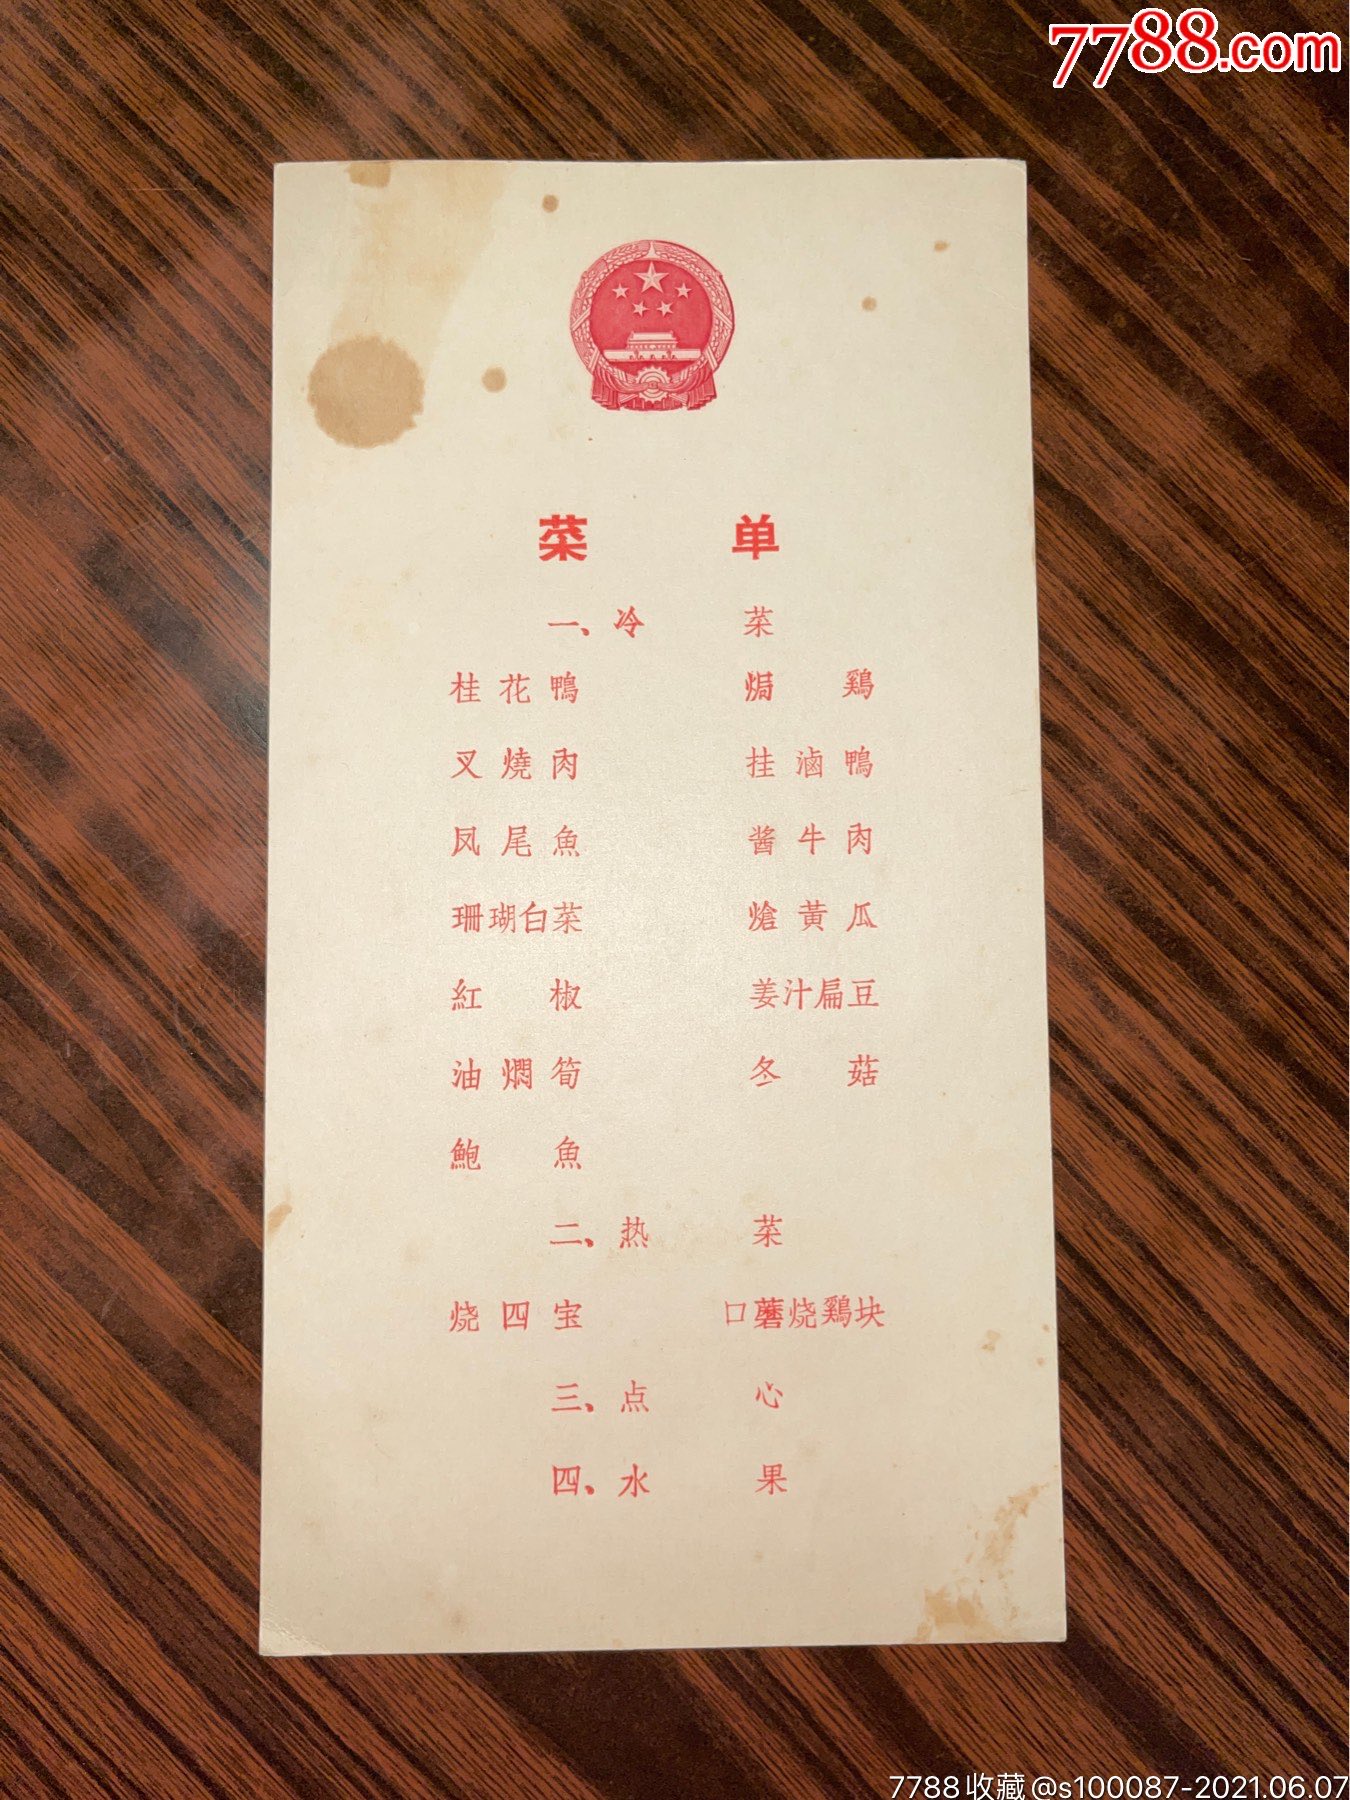 7788.com
菜 单
一、冷 菜
桂花鴨 焗 鷄
叉燒肉 挂滷鴨
凤尾魚 酱牛肉
珊瑚白菜 熗黄瓜
紅 椒 姜汁扁豆
油燜筍 冬 菇
鮑 魚
二、热 菜
烧四宝 口蘑烧鷄块
三、点 心
四、水 果
7788收藏@s100087-2021.06.07